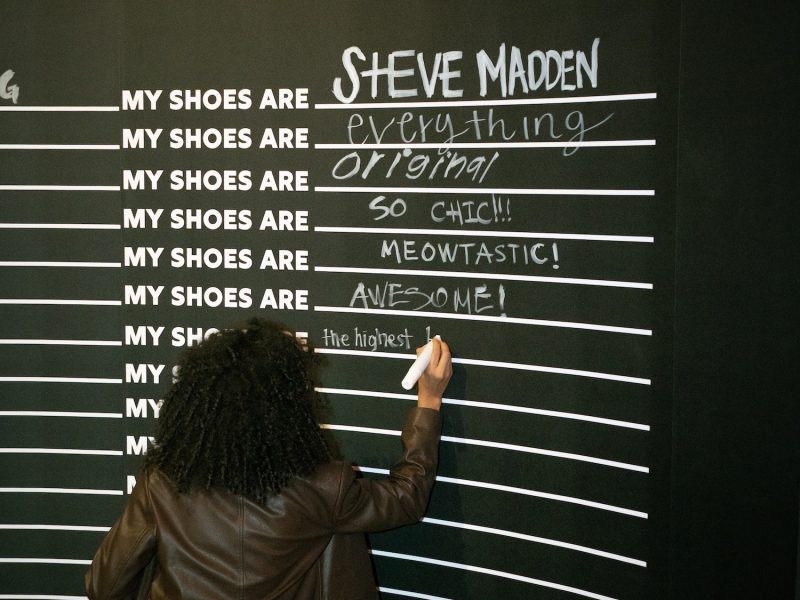 MY SHOES ARE STEVE MADDEN
MY SHOES ARE everything
MY SHOES ARE original
MY SHOES ARE SO CHIC!!!
MY SHOES ARE MEOWTASTIC!
MY SHOES ARE AWESOME!
MY the highest
MY
MY